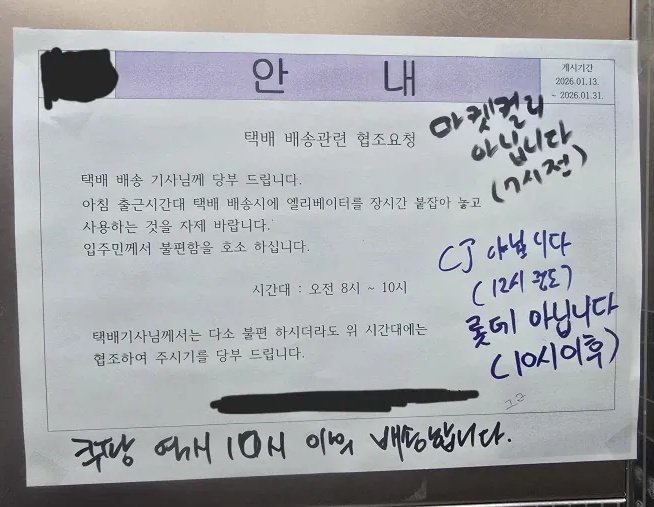 안 내
게시기간
2026.01.13.
~ 2026.01.31.
택배 배송관련 협조요청
택배 배송 기사님께 당부 드립니다.
아침 출근시간대 택배 배송시에 엘리베이터를 장시간 붙잡아 놓고
사용하는 것을 자제 바랍니다.
입주민께서 불편함을 호소 하십니다.
시간대 : 오전 8시 ~ 10시
택배기사님께서는 다소 불편 하시더라도 위 시간대에는
협조하여 주시기를 당부 드립니다.
마켓컬리
아닙니다
(7시전)
CJ 아닙니다
(12시 전도)
롯데 아닙니다
(10시이후)
쿠팡 역시 10시 이후 배송합니다.